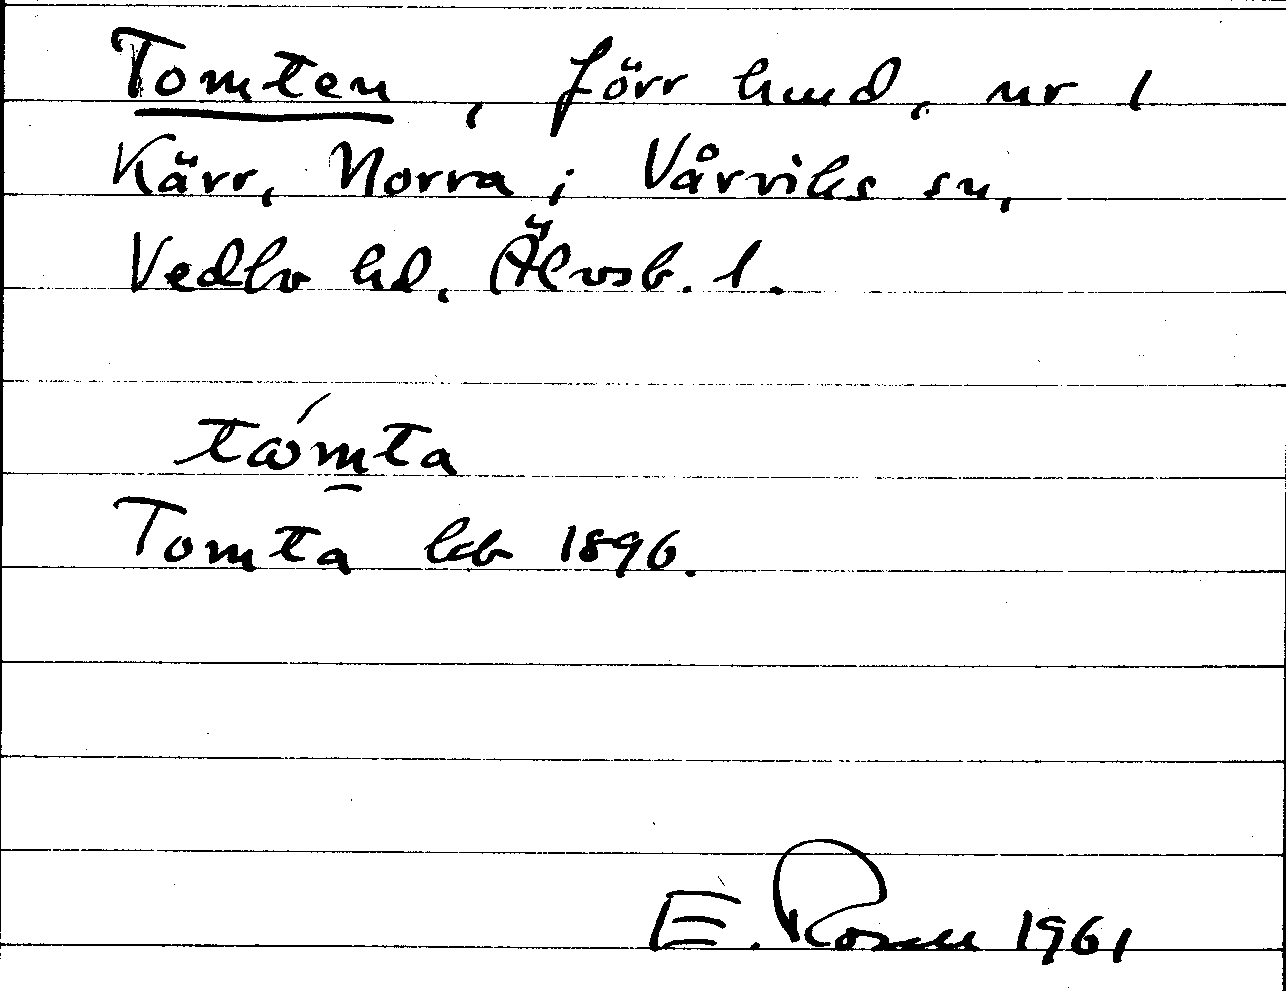 Tomten, förr hmd, nr 1
Kärr, Norra i Vårviks sn,
Vedbo hd, Älvsb. l.
tω´m̲ta
Tomta kb 1896.
E. Rosen 1961